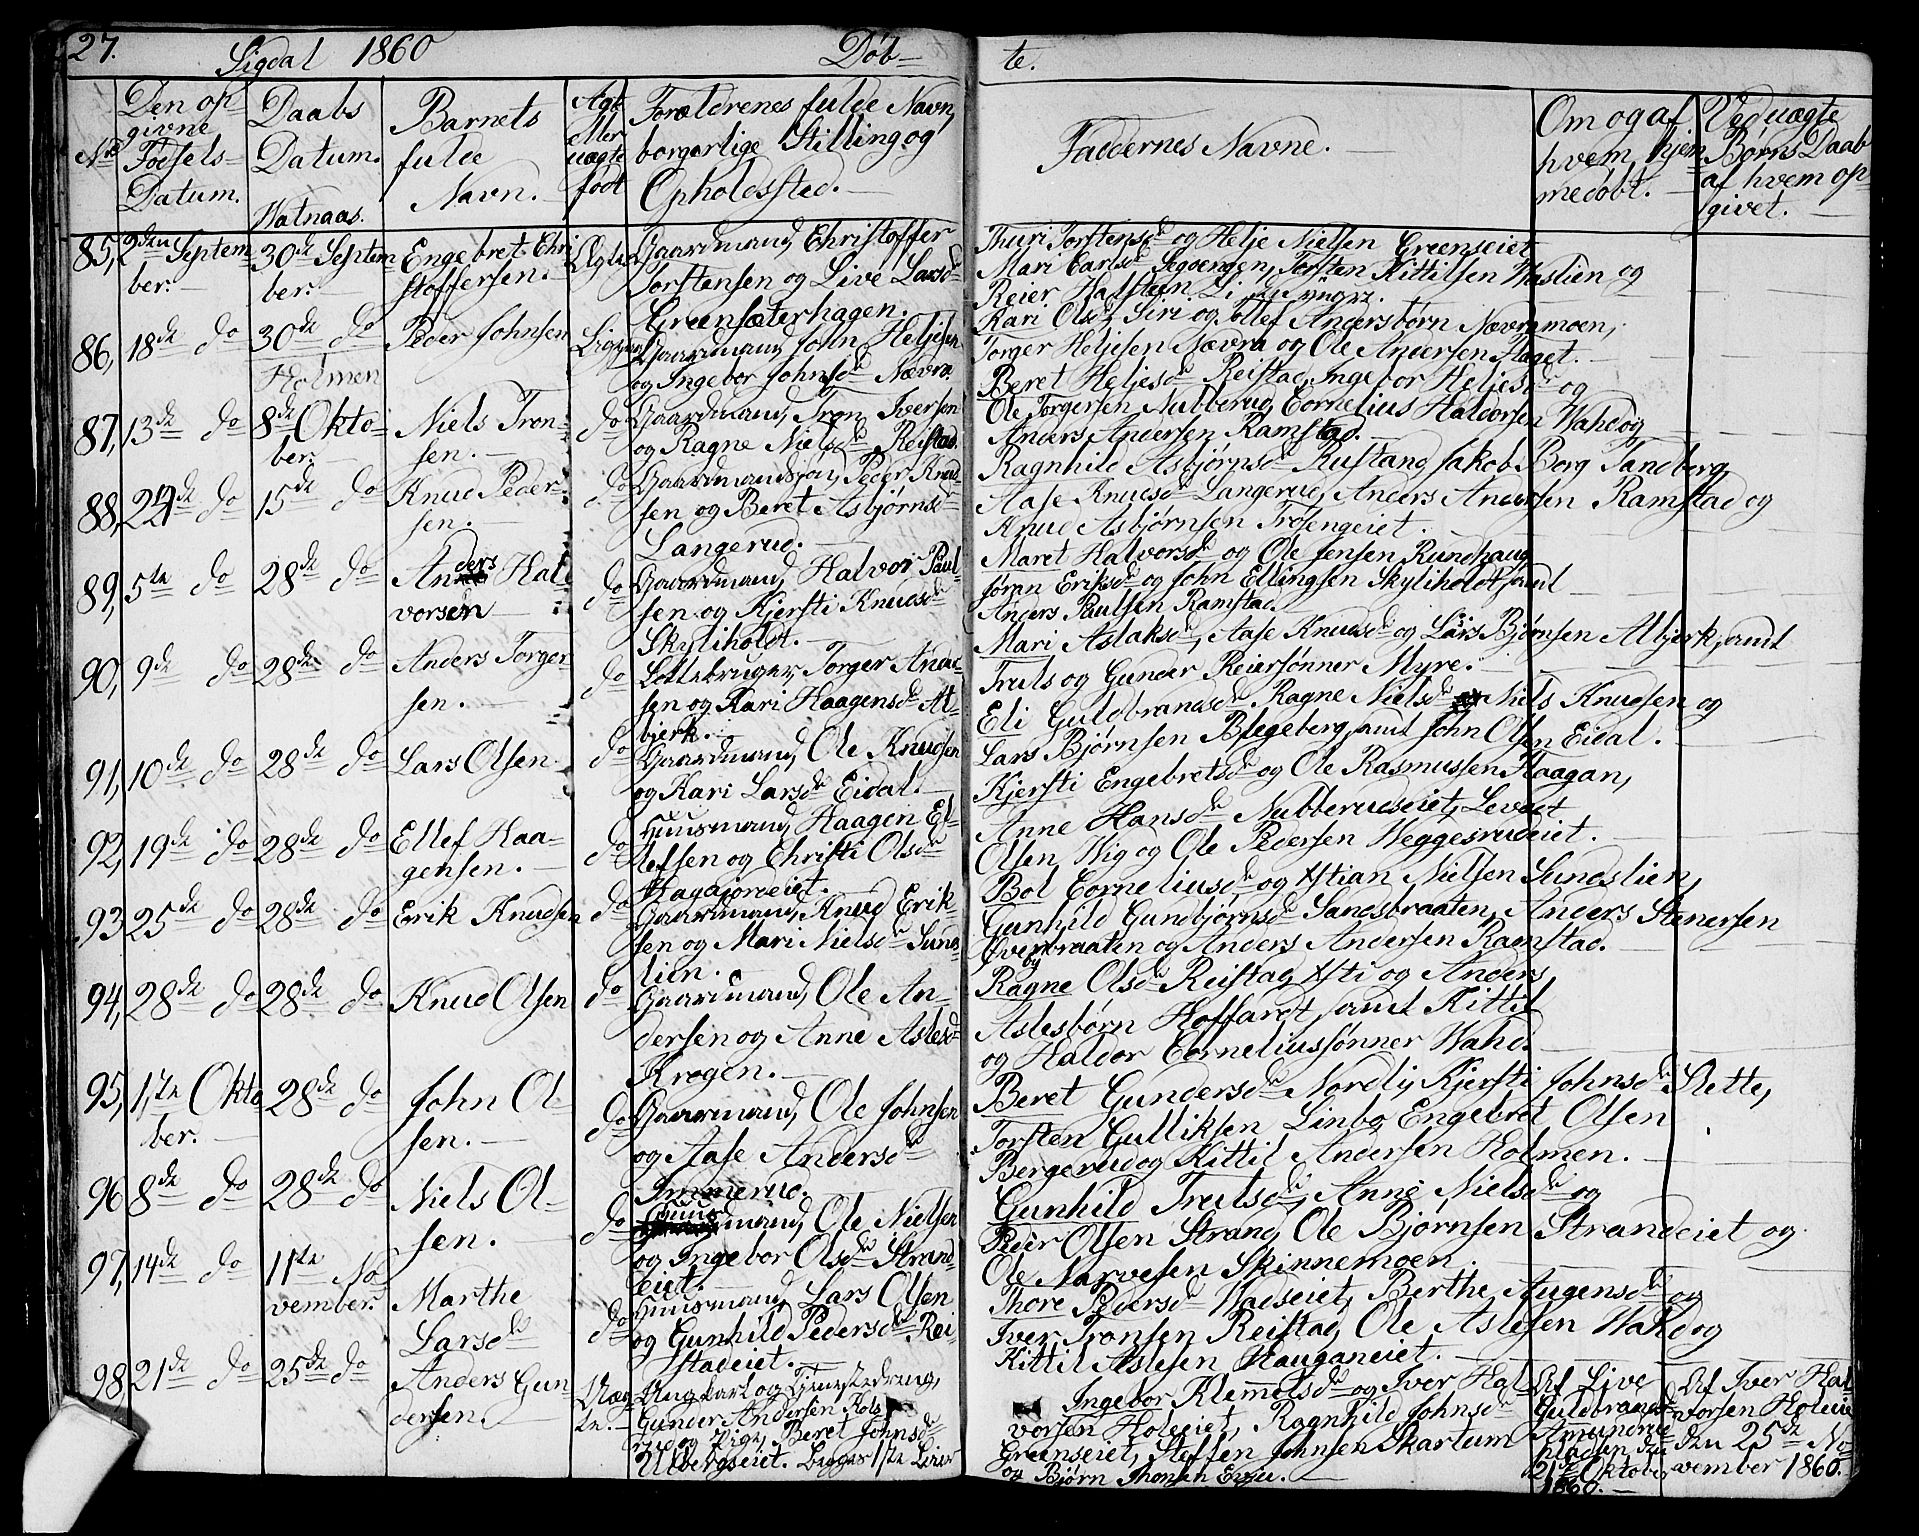 27.
Sigdal 1860
Døb-
te.
No
Den op-
givne
Fødsels-
Datum.
Daabs
Datum.
Hatnaas.
Barnets
fulde
Navn.
Ægte
eller
uægte
født
Forældrenes fulde Navn,
borgerlige Stilling og
Opholdssted.
Faddernes Navne.
Om og af
hvem hjem-
medøbt.
Ved uægte
Børns Daab
af hvem op-
givet.
85, 2den Septem-
ber.
30te Septem-
ber.
Engebret Chri-
stoffersen.
Ægte
Gaardmand, Christoffer
Torstensen og Live Larsd
Greensæterhagen.
Thuri Torstensd og Helje Nielsen Greenseiet
Mari Carlsd Torsten Kittilsen Haslien og
Reier Halsteen
86, 18de do
30de do
Holmen
Peder Johnsen
Gaardmand, John Heljesen
og Ingebor Johnsd Nævra.
Kari Olsd, Siri og Ollef Andersbørn Nævramoen,
Torger Heljesen Nævra og Ole Andersen Flaget.
87, 13de do
8de Okto-
ber.
Niels Tron-
sen.
do
Gaardmand, Tron Iversen
og Ragne Nielsd Reistad.
Beret Heljesd Reistad, Ingebor Heljesd og
Ole Torgersen Nubberud, Cornelius Haldorsen Wahd og
Anders Andersen Ramstad.
88, 22de do
15de do
Knud Peder-
sen.
do
Gaardmandsøn, Peder Knud-
sen og Beret Asbjørnsd
Langerud.
Ragnhild Asbjørnsd Rustand, Jakob Borg Tandberg,
Aase Knudsd Langerud, Anders Andersen Ramstad og
Knud Asbjørnsen Frøsengeiet.
89, 5te do
28de do
Anders Hal-
vorsen
do
Gaardmand, Halvor Paul-
sen og Kjersti Knudsd
Skyliholdt.
Maret Halvorsd og Ole Jensen Rundhaug,
Jøran Eriksd og John Ellingsen Skyliholdt samt
Anders Paulsen Ramstad.
90, 9de do
28de do
Anders Torger-
sen.
do
Lottebruger, Torger Ander-
sen og Kari Haagensd Al-
bjerk.
Mari Aslaksd, Aase Knudsd og Lars Bjørnsen Albjerk, samt
Truls og Gunder Reiersønner Myre.
91, 10de do
28de do
Lars Olsen
do
Gaardmand, Ole Knudsen
og Kari Larsd Eidal.
Eli Guldbrandsd Ragne Nielsd Niels Knudsen og
Lars Bjørnsen Blegeberg, samt John Olsen Eidal.
92, 19de do
28de do
Ellef Haa-
gensen.
do
Huusmand, Haagen El-
lefsen og Christi Olsd
Hagajordeiet.
Kjersti Engebretsd og Ole Rasmussen Haagan,
Anne Hansd Nubberudseiet, Levedt
Olsen Wig og Ole Pedersen Heggesrudeiet.
93 25de do
28de do
Erik Knudsen
do
Gaardmand, Knud Erik-
sen og Mari Nielsd Sunds-
lien.
Bol Corneliusd og Xstian Nielsen Sundslien,
Gunhild Gundbjørnsd Sandsbraaten, Anders Stenersen
Øverbybraaten og Anders Andersen Ramstad.
94, 28de do
28de do
Knud Olsen
do
Gaardmand, Ole An-
dersen og Anne Aslesd
Krogen.
Ragne Olsd Reistad, Xsti og Anders
Aslesbørn Hoffaret, samt Kittil
og Haldor Corneliussønner Wahd.
95, 1ste Okto-
ber.
28de do
John Ol-
sen.
do
Gaardmand, Ole Johnsen
og Aase Andersd
Trimerud.
Beret Gundersd Nordli, Kjersti Johnsd Slette,
Torsten Gulliksen Linbo, Engebret Olsen
Bergerud og Kittil Andersen Holmen.
96 8de do
28de do
Niels Ol-
sen.
do
Huusmand, Ole Nielsen
og Ingebor Olsd Strand-
eiet.
Gunhild Trulsd, Anne Nielsd og
Peder Olsen Strand, Ole Bjørnsen Strandeiet og
Ole Narvesen Skinnemoen.
97, 14de do
11te No-
vember.
Marthe
Larsd
do
Huusmand, Lars Olsen
og Gunhild Pedersd Rei-
stadeiet.
Thore Pedersd Wadseiet, Berthe Augensd og
Iver Tronsen Reistad, Ole Aslesen Wahd og
Kittil Aslesen Hauganeiet.
98 21de do
25de do
Anders Gun-
dersen.
Uæg-
te.
Ungkarl og
Gunder Andersen Kols-
rud og Pige, Beret Johnsd
Ulbergseiet. Begges 1ste Leier
Ingebor Klemmetsd og Iver Hal-
vorsen Holeiet, Ragnhild Johnsd
Greenseiet, Steffen Johnsen Skartum
og Bjørn Thomesen
Af Live
Guldbrandsd
Amundrud-
hladsen, den
21de Oktober
1860.
Af Iver Hal-
vorsen Holeie
den 25de No-
vember 1860.